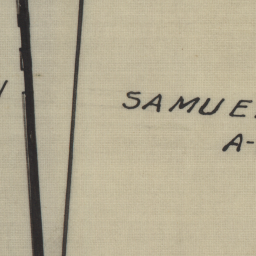 SAMUE
A-